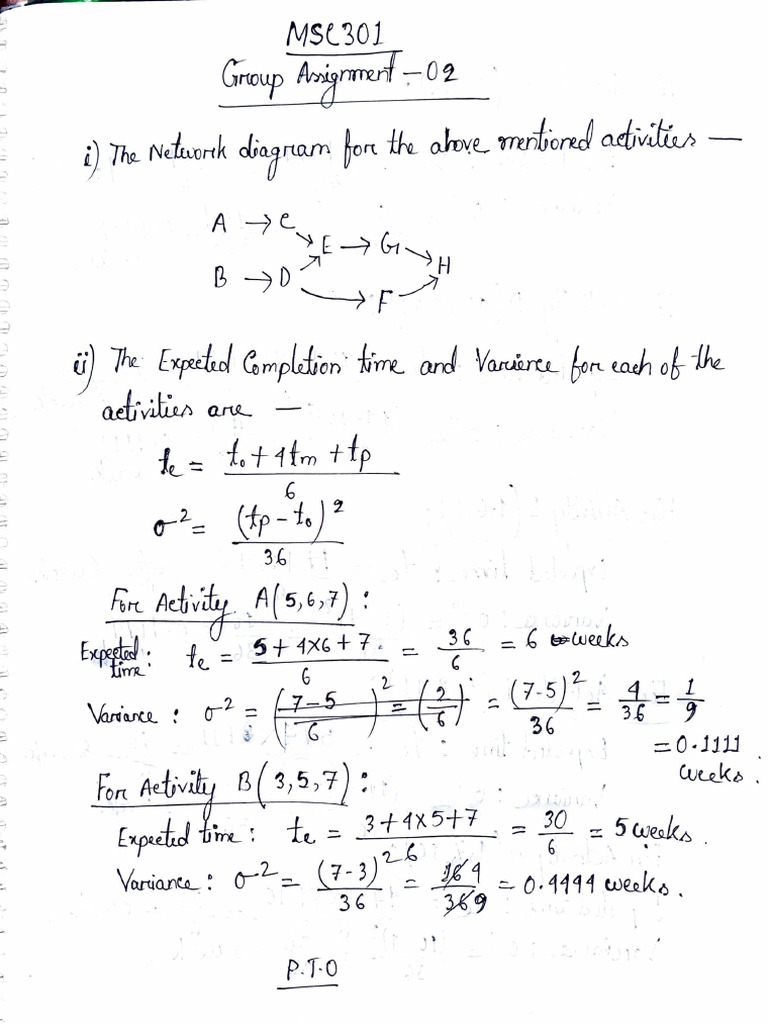 MSC301
Group Assignment - 02
i) The Network diagram for the above mentioned activities —
A → C
→ E → G → H
B → D
→ F
ii) The Expected Completion time and Varience for each of the
activities are —
te = (to + 4tm + tp) / 6
σ² = (tp - to)² / 36
For Activity A(5,6,7) :
Expected time : te = (5 + 4×6 + 7) / 6 = 36/6 = 6 weeks
Variance : σ² = ((7-5)/6)² = (2/6) = (7-5)²/36 = 4/36 = 1/9
= 0.1111
weeks.
For Activity B(3,5,7) :
Expected time : te = (3+4×5+7) / 6 = 30/6 = 5 weeks.
Variance : σ² = (7-3)²/36 = 16 4/36 9 = 0.4444 weeks.
P.T.O